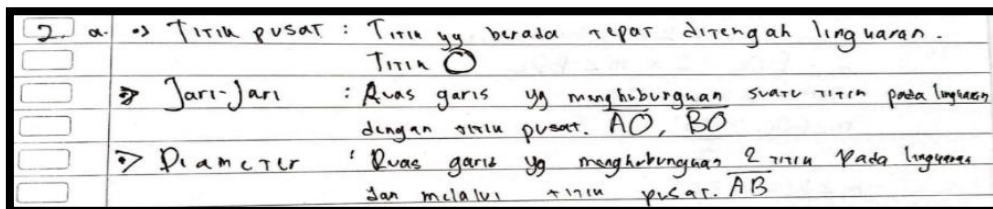 2. a. => Titik pusat : Titik yg berada tepat ditengah lingkaran.
Titik O
=> Jari-Jari : Ruas garis yg menghubungkan suatu titik pada lingkaran
dengan titik pusat. AO, BO
=> Diameter : Ruas garis yg menghubungkan 2 titik pada lingkaran
dan melalui titik pusat. AB